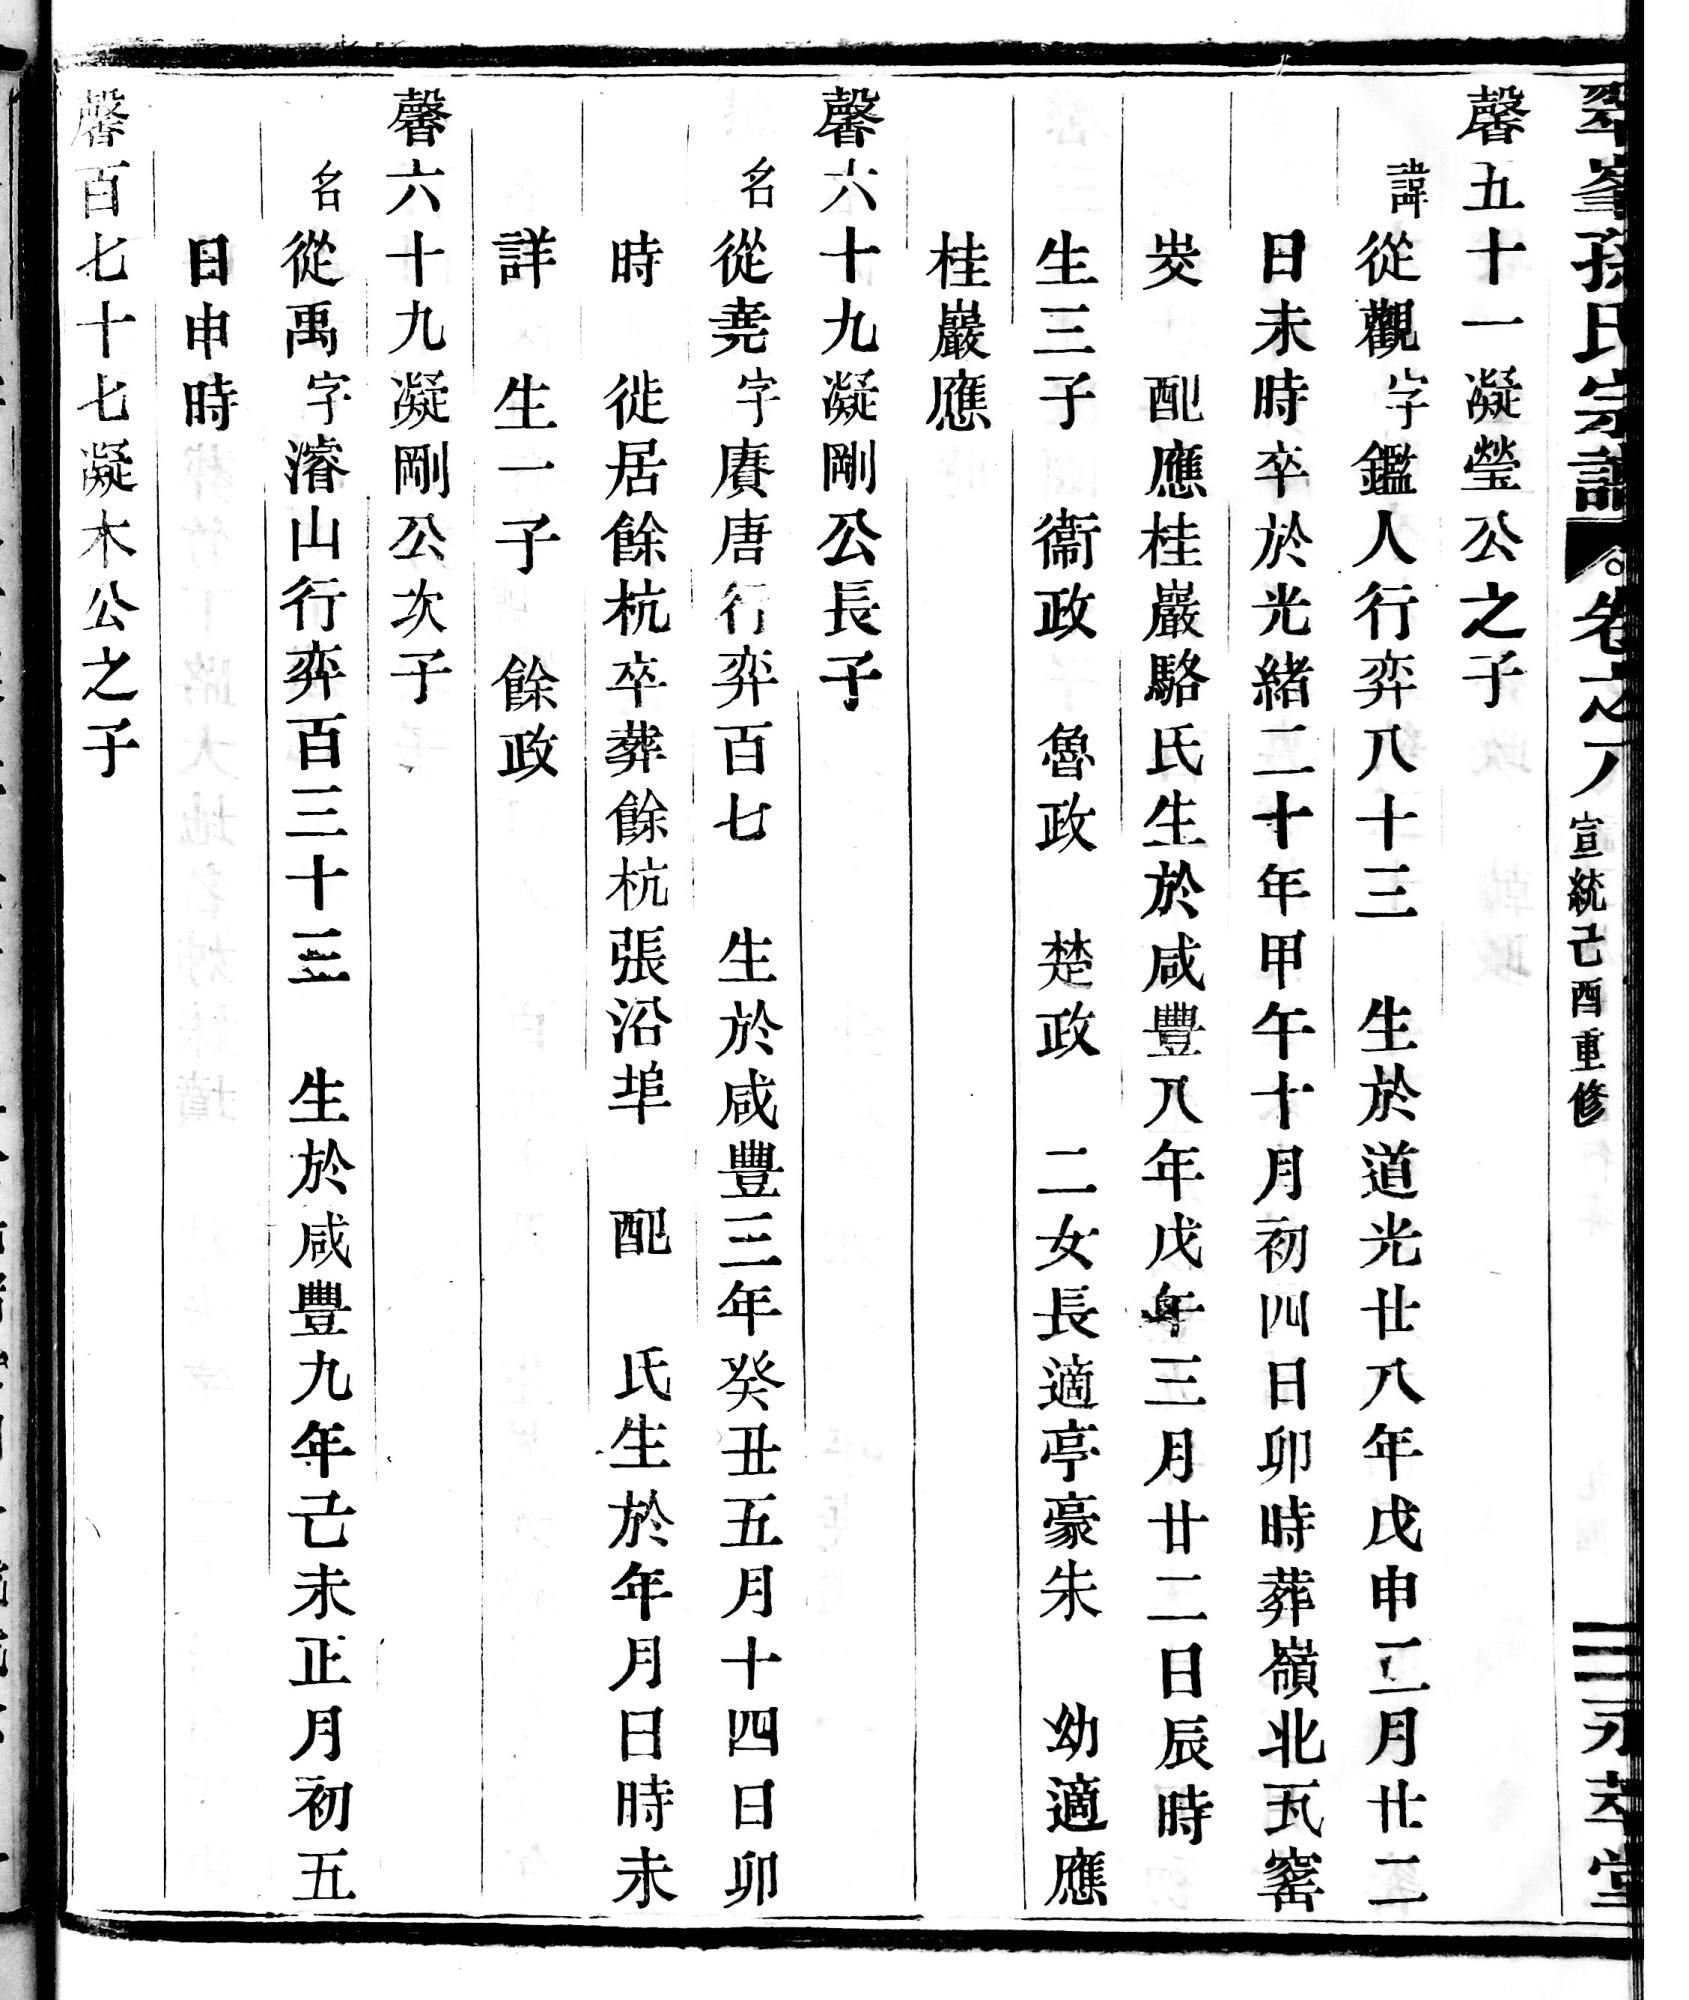 翠峯孫氏宗譜 卷之八 宣統己酉重修 永萃堂
馨五十一凝瑩公之子
諱從觀字鑑人行弈八十三 生於道光廿八年戊申二月廿二
日未時卒於光緒二十年甲午十月初四日卯時葬嶺北瓦窰
㷎 配應桂巖駱氏生於咸豐八年戊午三月廿二日辰時
生三子 衞政 魯政 楚政 二女長適亭豪朱 幼適應
桂巖應
馨六十九凝剛公長子
名從堯字賡唐行弈百七 生於咸豐三年癸丑五月十四日卯
時 徙居餘杭卒葬餘杭張沿埠 配 氏生於年月日時未
詳 生一子 餘政
馨六十九凝剛公次子
名從禹字濬山行弈百三十三 生於咸豐九年己未正月初五
日申時
馨百七十七凝木公之子